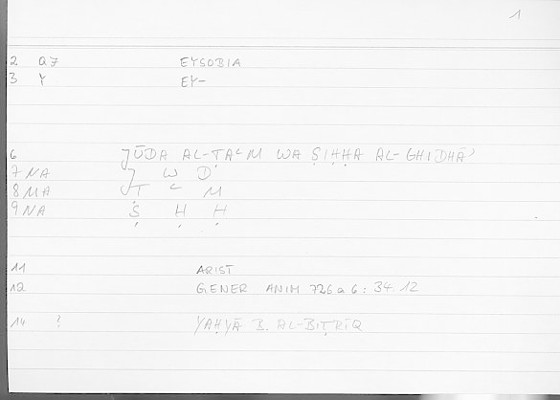 1
2 AJ EYSOBIA
3 Y EY-
6 JŪDA AL-ṬAʿM WA ṢIḤḤA AL-GHIDHĀʾ
7 NA J W D
8 MA Ṭ ʿ M
9 NA Ṣ Ḥ Ḥ
11 ARIST
12 GENER ANIM 726 a 6 : 34.12
14 ? YAḤYĀ B. AL-BIṬRĪQ